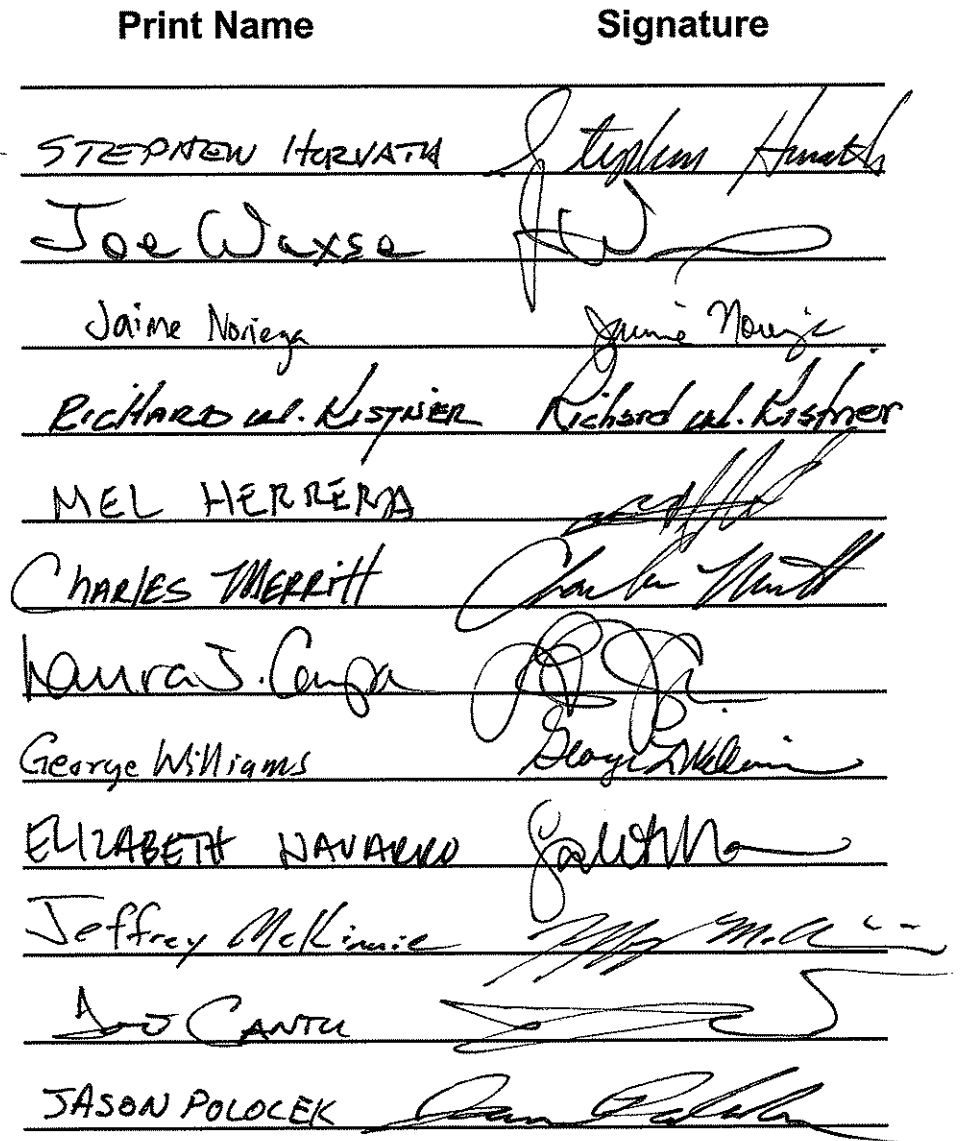 Print Name Signature
STEPHEN HORVATH Stephen Horvath
Joe Waxse
Jaime Noriega Jaime Noriega
RICHARD W. KISTNER Richard W. Kistner
MEL HERRERA
CHARLES MERRITT Charles Merritt
Laura J.
George Williams George Williams
ELIZABETH NAVARRO
Jeffrey McKinnie
CANTU
JASON POLOCEK